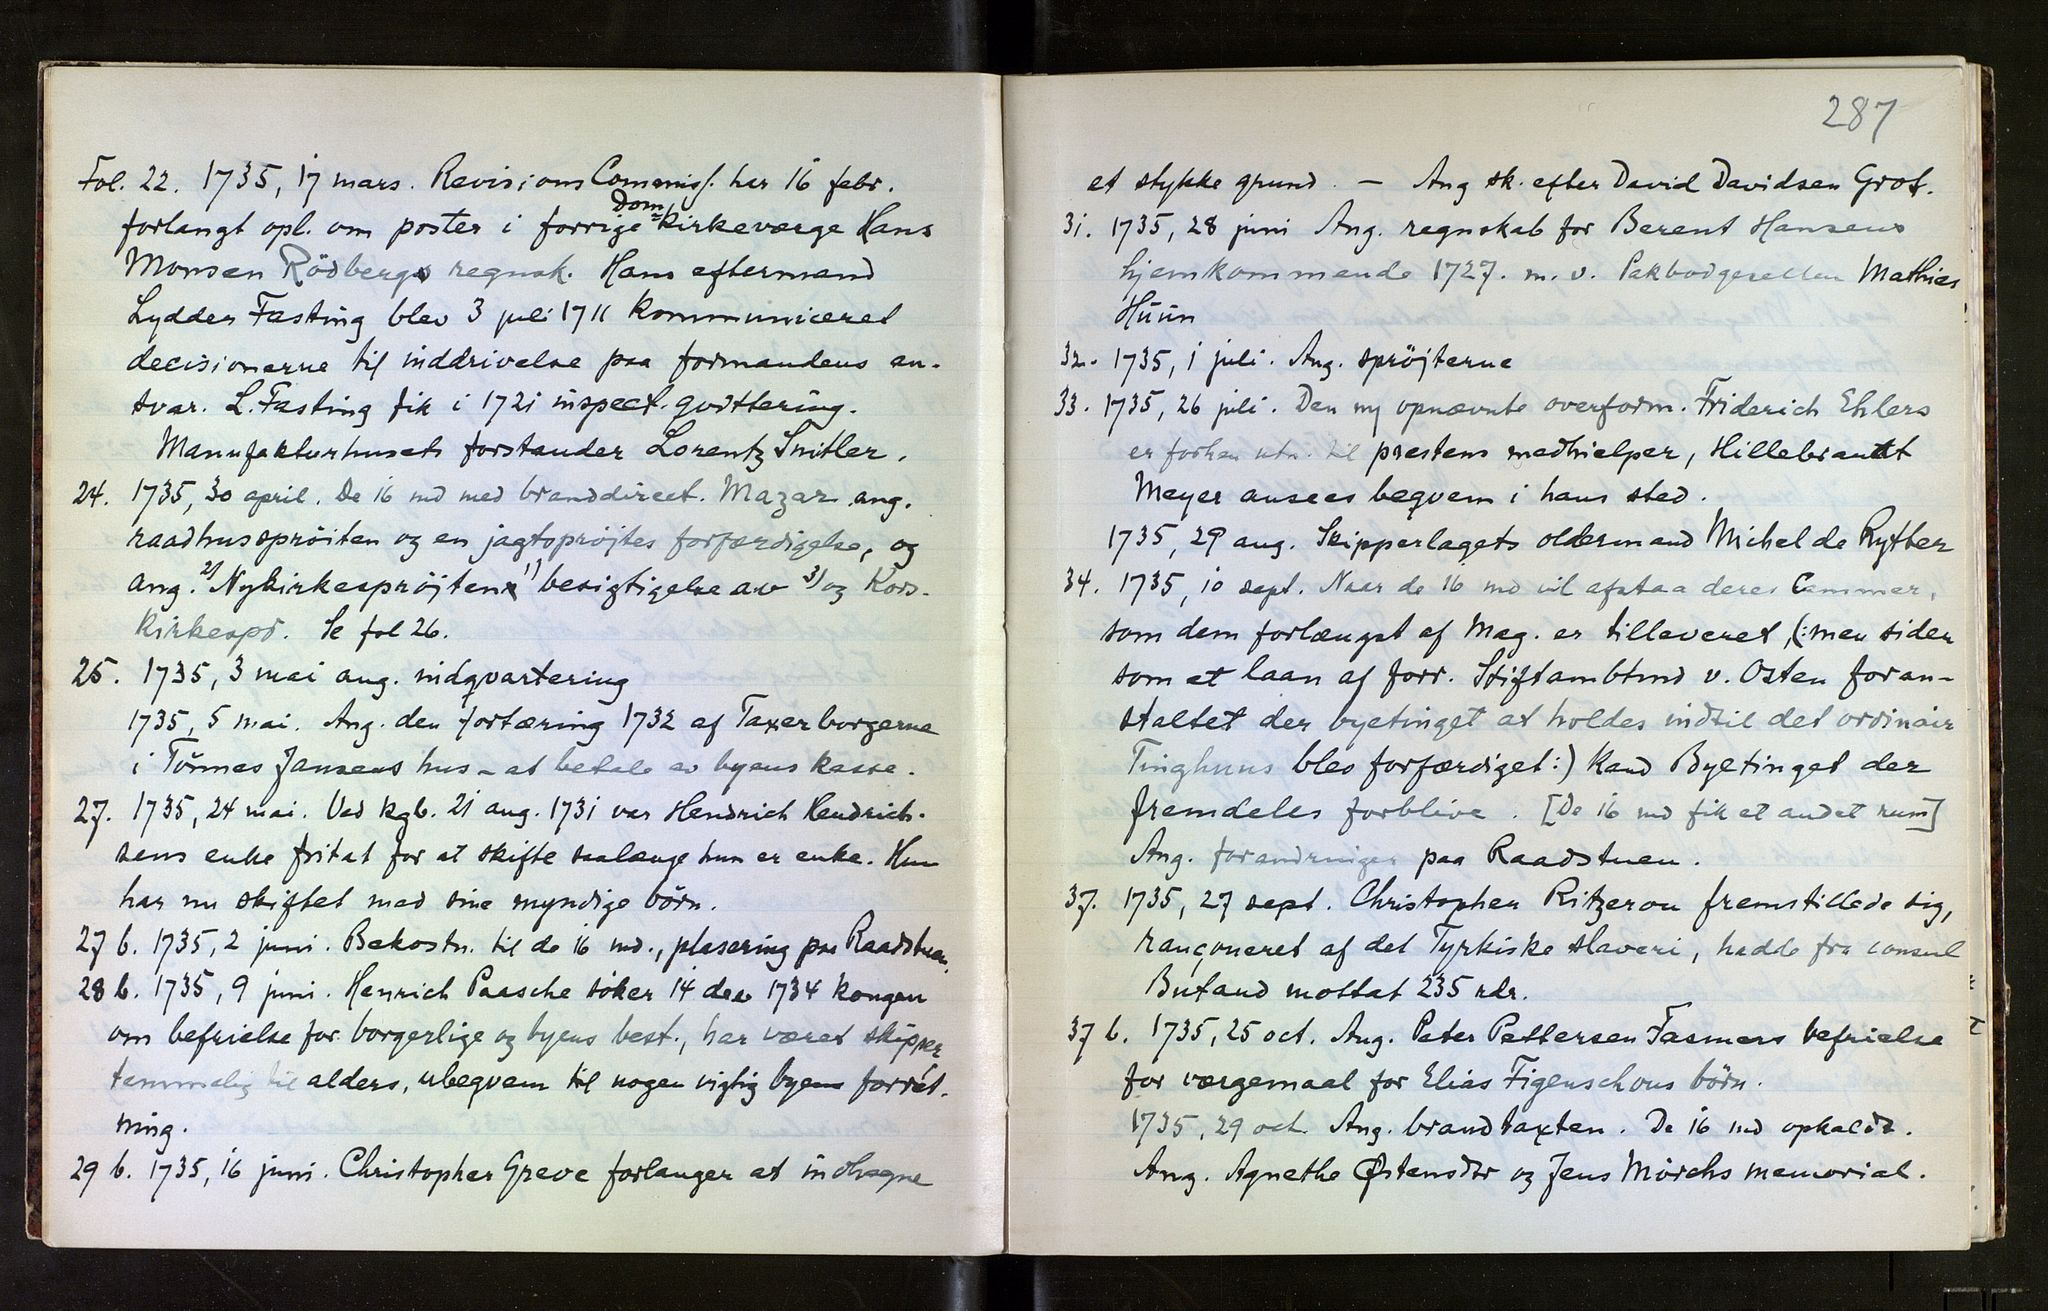 Fol. 22. 1735, 17 mars. Revisions Commiss. har 16 febr.
forlangt opl. om poster i forrige Dom=kirkeværge Hans
Monsen Rödbergs regnsk. Hans eftermand
Lydder Fasting blev 3 juli 1711 kommuniceret
decisionerne til inddrivelse paa formandens an-
svar. L. Fasting fik i 1721 inspect. qvittering.
Manufakturhusets forstander Lorentz Snitler.
24. 1735, 30 april. De 16 md med branddirect. Mazar ang.
raadhussprøiten og en jagtsprøjtes forfærdigelse, og
ang. 2) Nykirkesprøjten 1) besigtigelse av 3) og Kors-
kirkespr. Se fol 26.
25. 1735, 3 mai ang. indqvartering
1735, 5 mai. Ang. den fortæring 1732 af Taxerborgerne
i Tönnes Jansens hus - at betale av byens kasse.
27. 1735, 24 mai. Ved kgb. 21 aug. 1731 var Hendrich Hendrich-
sens enke fritat for at skifte saalænge hun er enke. Hun
har nu skiftet med sine myndige börn.
27 b. 1735, 2 juni. Bekostn. til de 16 md., plasering paa Raadstuen.
28 b. 1735, 9 juni. Henrich Paasche söker 14 dec 1734 kongen
om befrielse for borgerlige og byens best., har været skipper
temmelig til alders, ubeqvem til nogen vigtig byens forret-
ning.
29 b. 1735, 16 juni. Christopher Greve forlanger at indhegne
287
et stykke grund. - Ang sk. efter David Davidsen Grot.
31. 1735, 28 juni Ang. regnskab for Berent Hansens
hjemkommende 1727. m. v. Pakbodgesellen Mathias
Húún
32. 1735, 1 juli. Ang. sprøjterne
33. 1735, 26 juli. Den ny opnævnte overform. Friderich Ehlers
er forhen utn. til prestens medhielper, Hillebrandt
Meyer ansees beqvem i hans sted.
1735, 29 aug. Skipperlagets oldermand Michel de Rytter
34. 1735, 10 sept. Naar de 16 md vil afstaa deres Cammer,
som dem forlængst af Mag. er tilleveret, (: men siden
som et laan af forr. Stiftambtmd v. Osten foran-
staltet der byetinget at holdes indtil det ordinair
Tinghuus blev forfærdiget :) kand Byetinget der
fremdeles forblive. [De 16 md fik et andet rum]
Ang. forandringer paa Raadstuen.
37. 1735, 27 sept. Christopher Ritzerou fremstillede sig,
rançoneret af det Tyrkiske slaveri, hadde fra consul
Bufand mottat 235 rdr.
37 b. 1735, 25 oct. Ang. Peter Pettersen Fasmers befrielse
for værgemaal for Elias Figenschous börn.
1735, 29 oct. Ang. brandtaxten. De 16 md opkaldt.
Ang. Agnethe Østensdtr og Jens Mörchs memorial.